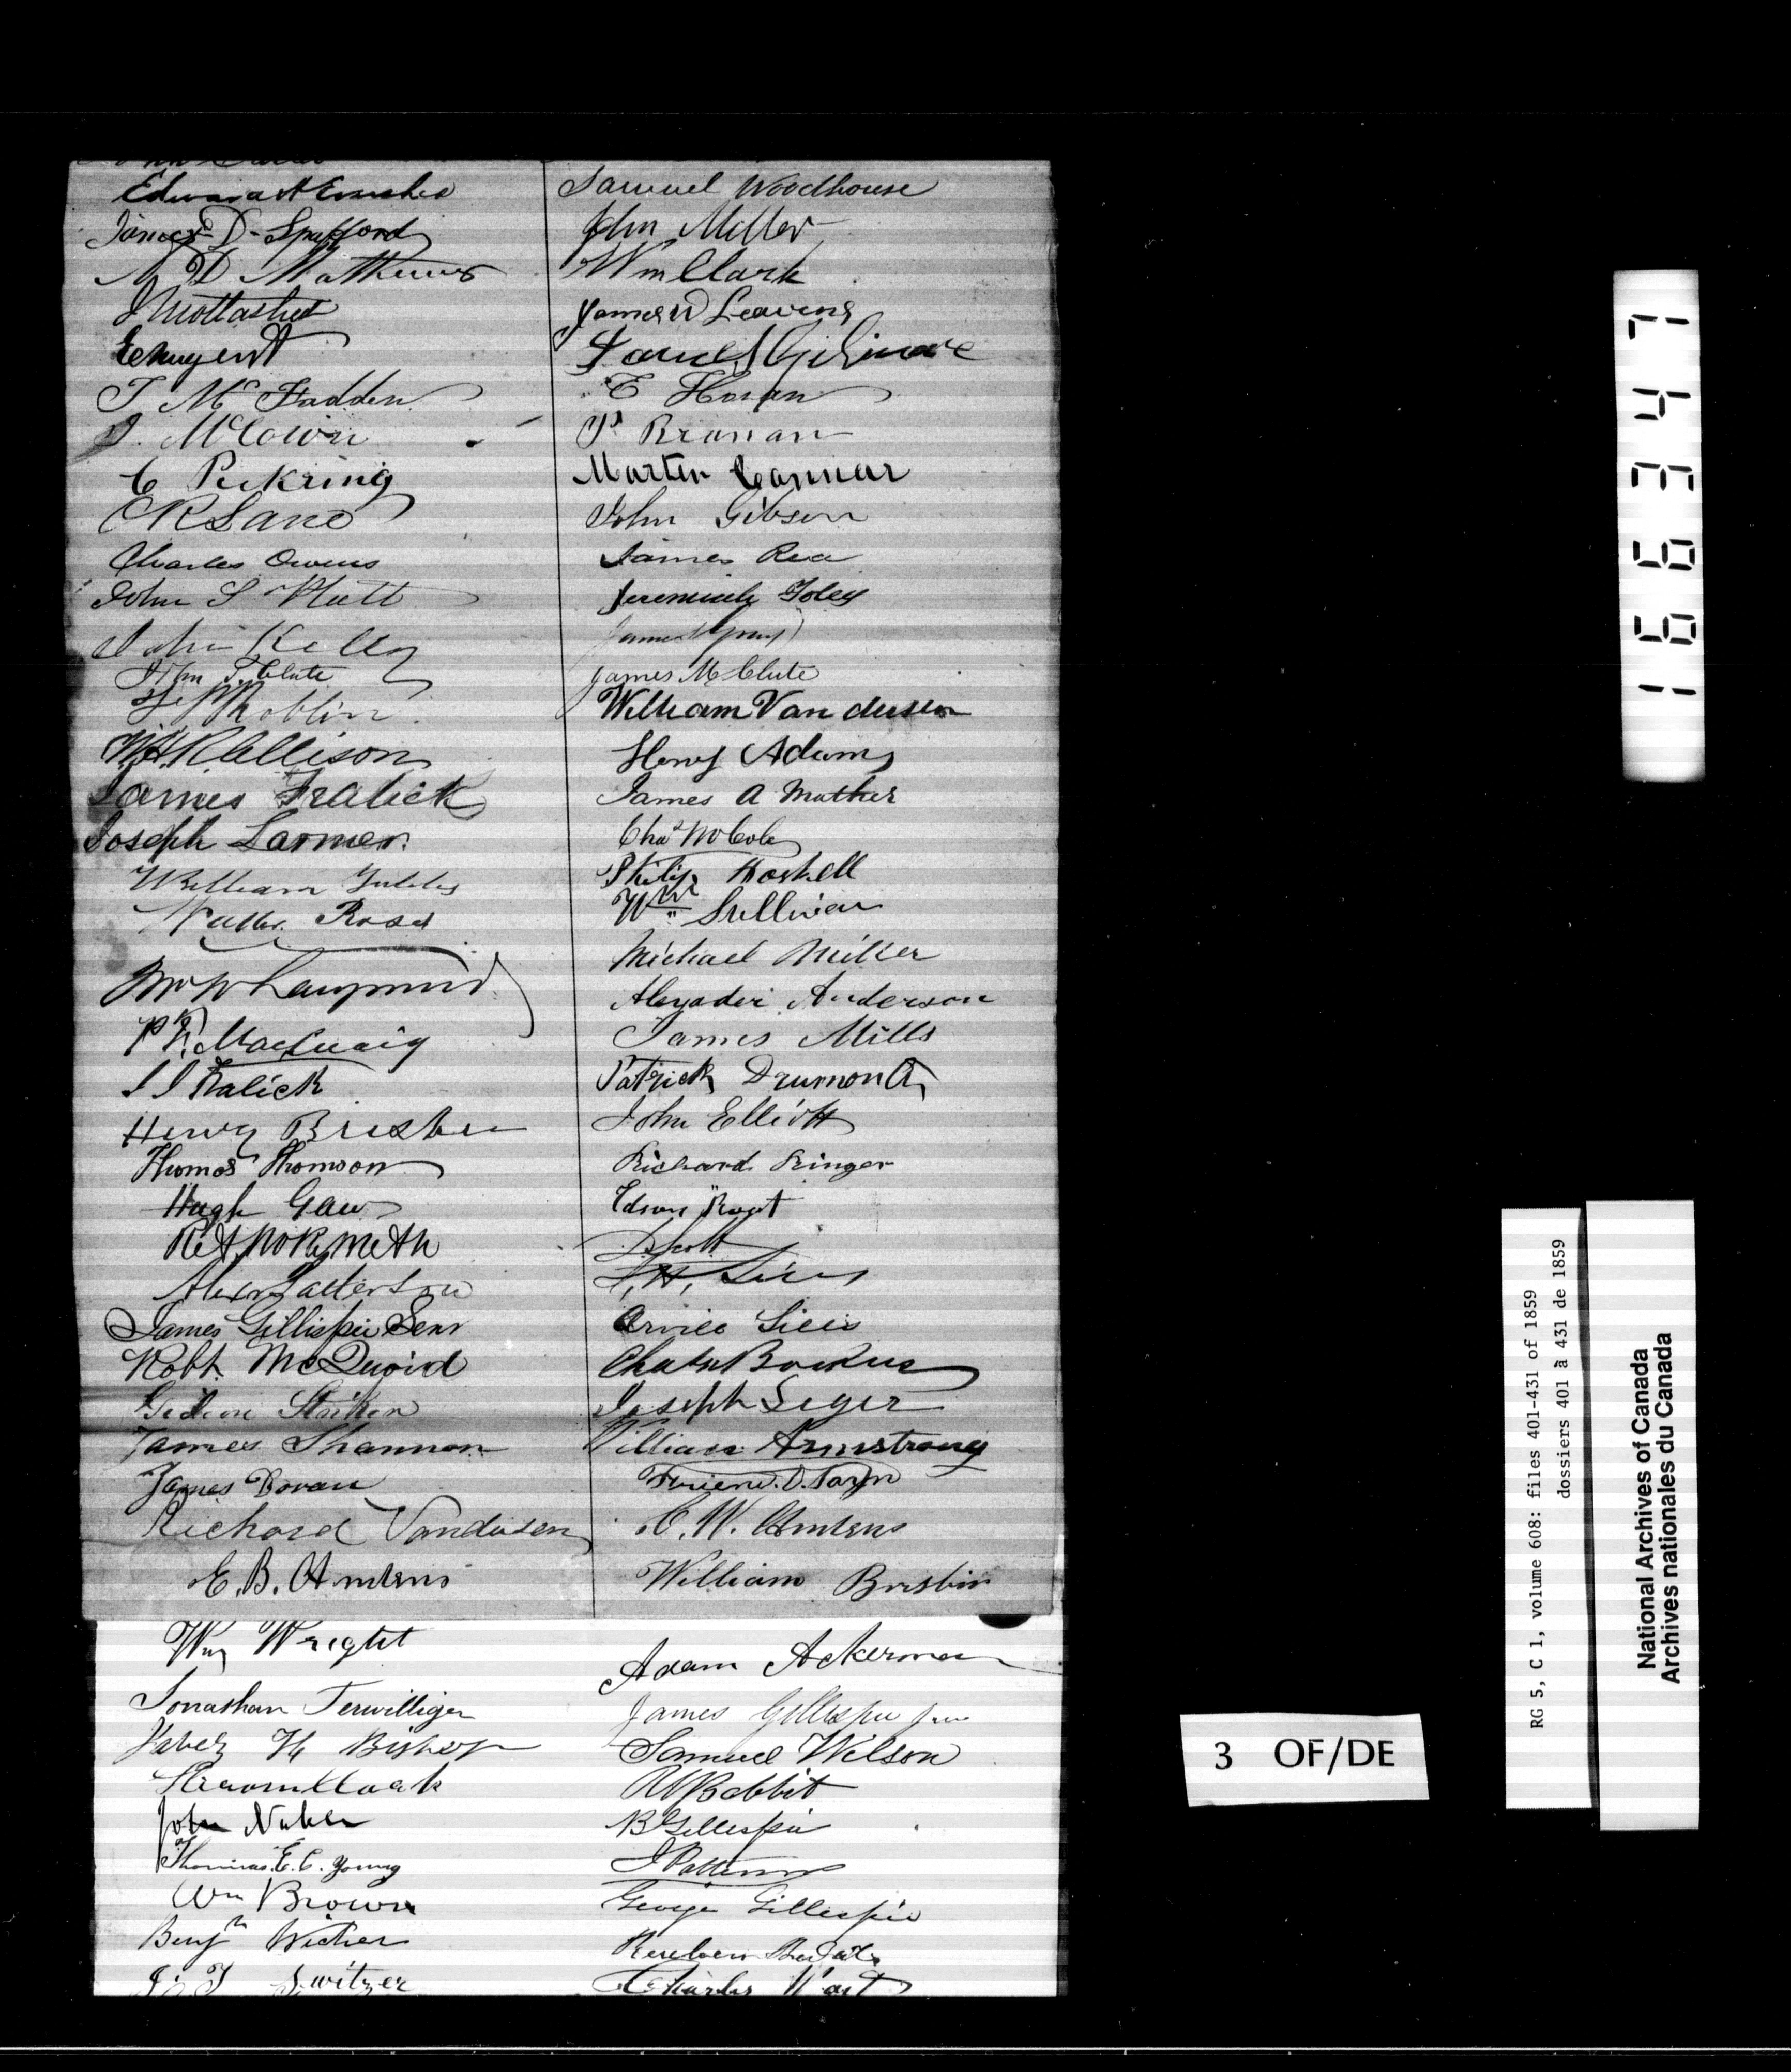 James D. Spafford
D Mathews
E Nugent
T McFadden
J. McCown
C Pickring
C R Lane
Charles Owens
John S Platt
John Kelly
John T. Clute
Roblin
W. H. R. Allison
James Fralick
Joseph Larmer.
William
Walter Ross
P. MacCuaig
Fralick
Henry Brisbin
Thomas Thomson
Hugh Gaw
Alexr Patterson
James Gillispie Senr
Robt. McQuoid
Gideon Striker
James Shannon
James Dovan
Richard Vandusen
E. B.
Samuel Woodhouse
John Miller
Wm Clark
James Leavens
Samuel Gilmore
E Horan
P Bronan
Martin Connar
John Gibson
James Rea
Jeremiah Foley
James Gray
James McClute
William Vandusen
Henry Adams
James A Mather
Chas W Cole
Philip Haskell
Wm Sullivan
Michael Miller
Alexader Anderson
James Mills
Patrick Drumond
John Elliott
Richard Ringer
Edson Root
Scott
Chas Bockus
Joseph Leger
William Armstrong
C. W.
William Brisbin
Wm Wright
Jonathan Terwilliger
Jabez H Bishop
John
Thomas. E. C. Young
Wm Brown
Benjn
Switzer
Adam Ackerman
James Gillespie Jun
Samuel Wilson
Babbit
B Gillespie
J Patterson
George Gillespie
Reuben
Charles
166347
RG 5, C 1, volume 608: files 401-431 of 1859
dossiers 401 à 431 de 1859
National Archives of Canada
Archives nationales du Canada
3 OF/DE